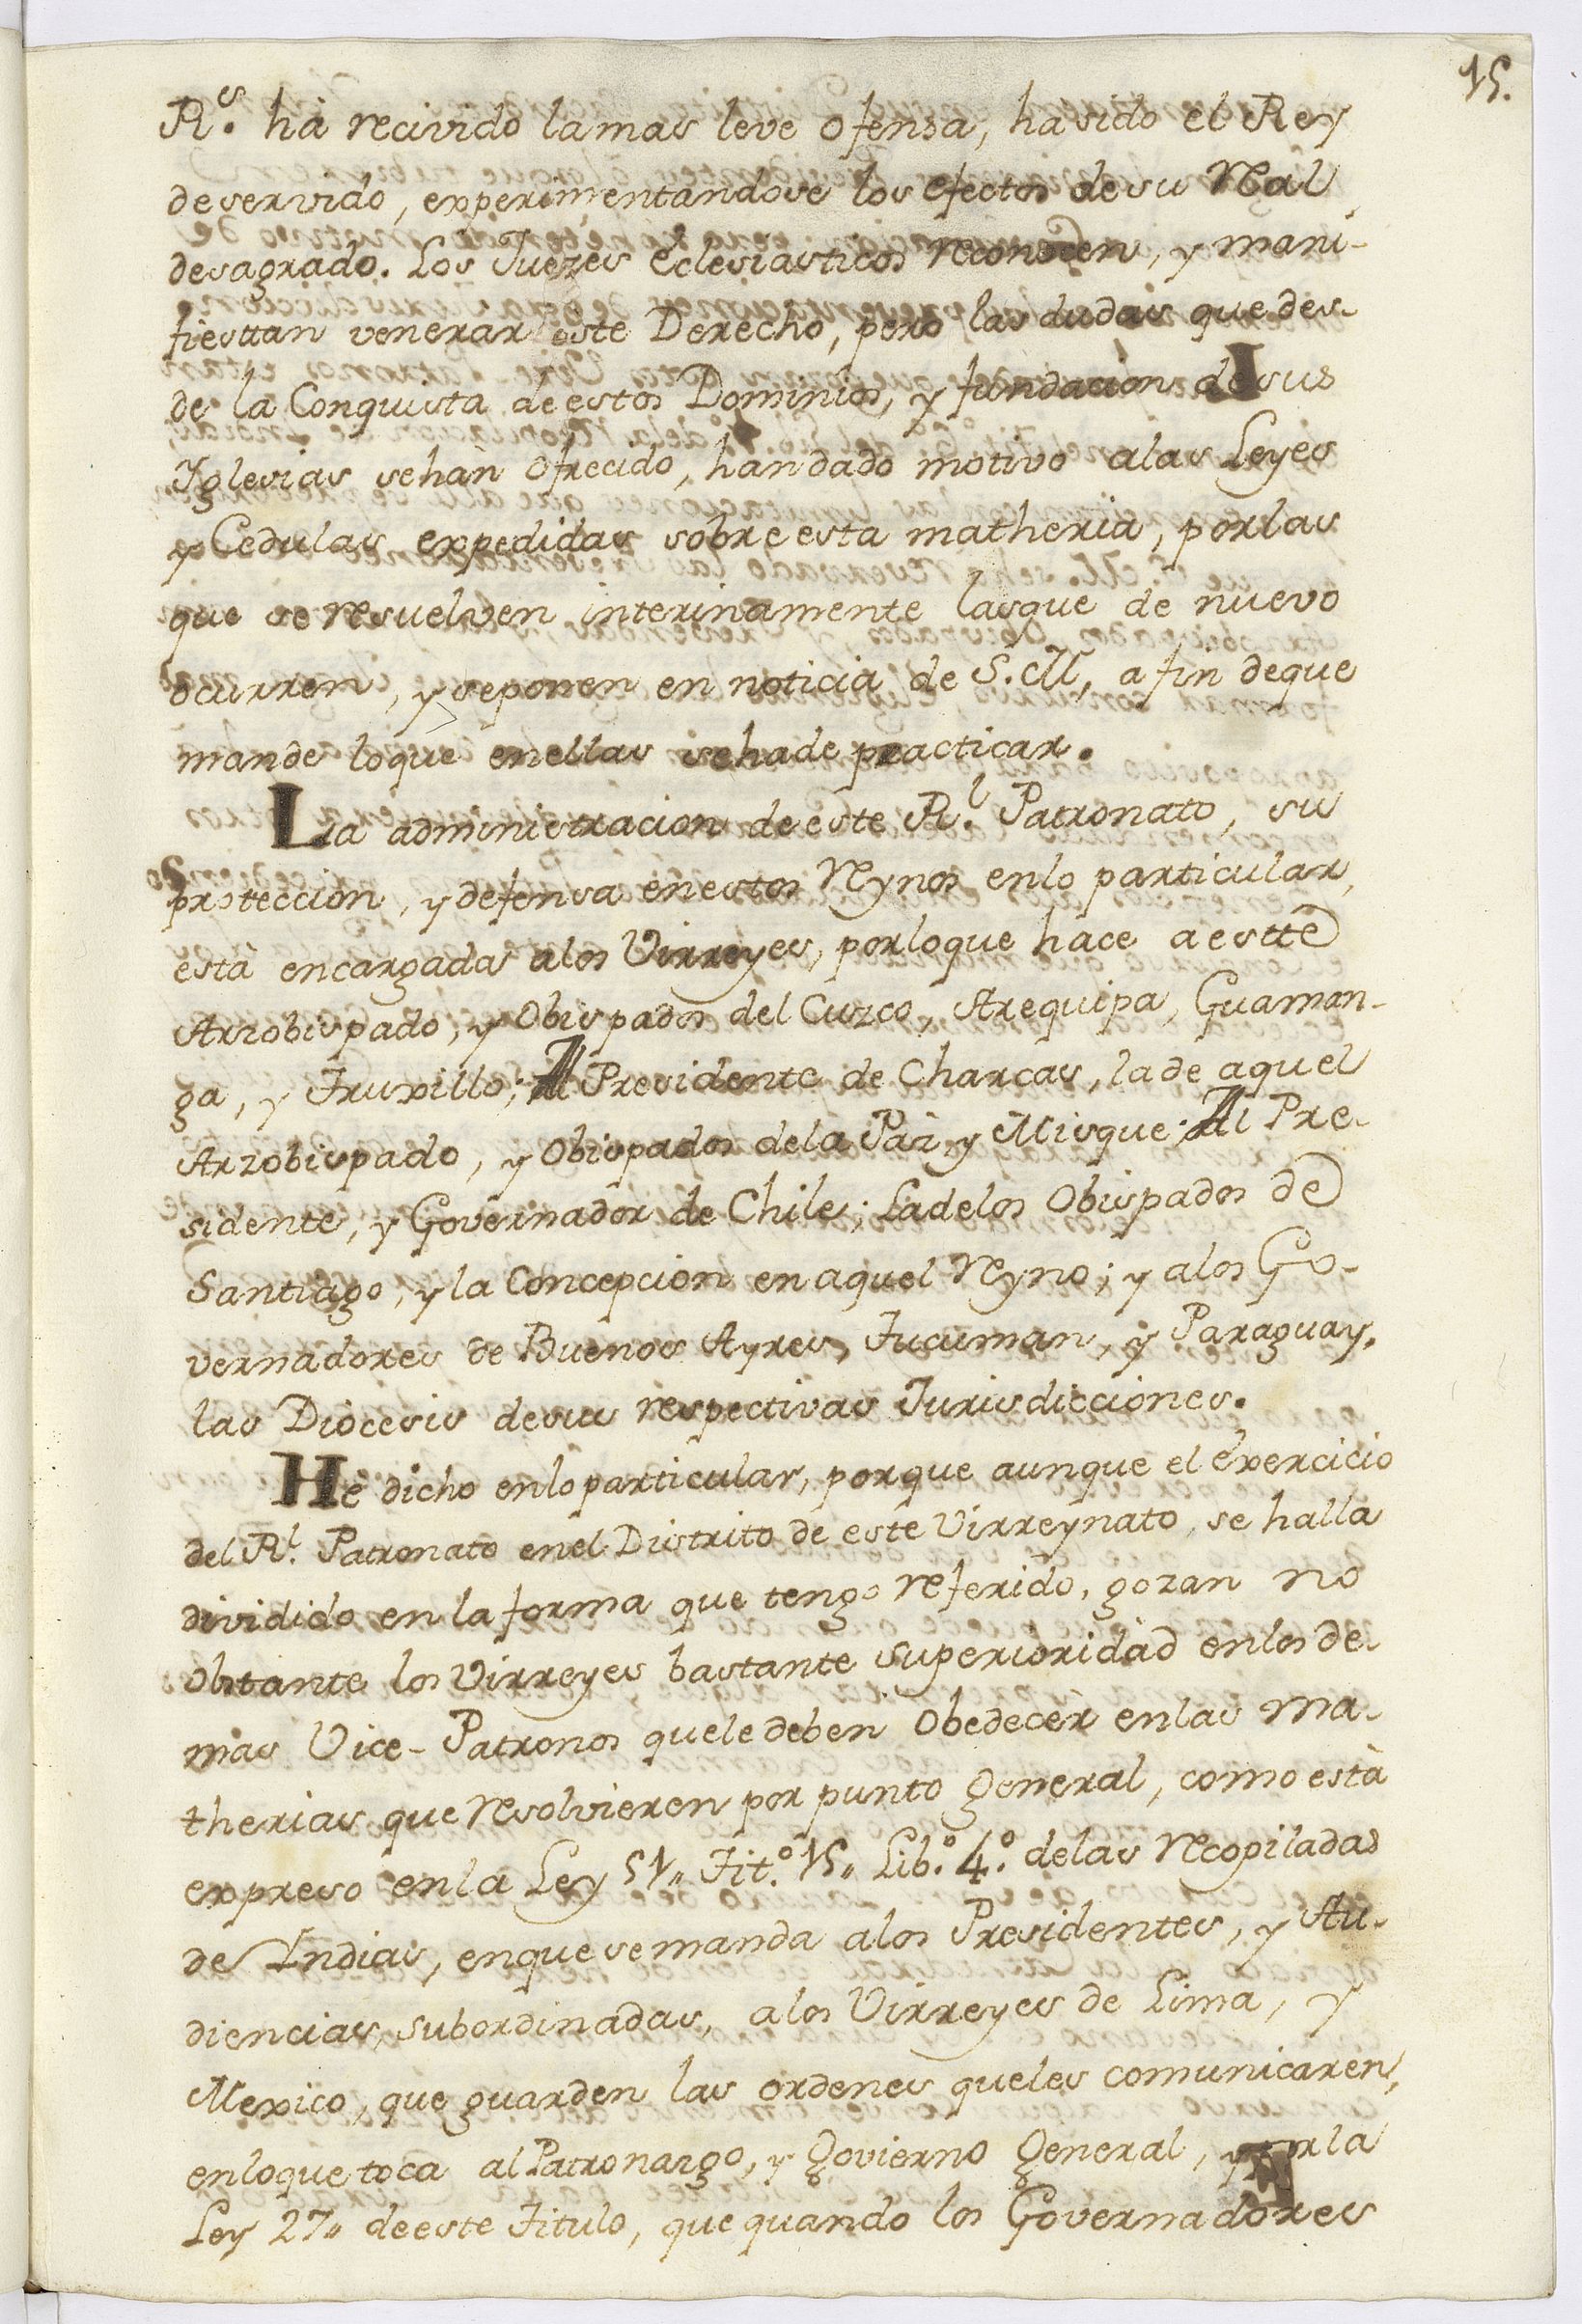 15.
R.^s hà recivido la mas leve ofensa, ha sido el Rey
deservido, experimentandose los efectos de su Real
desagrado. Los Juezes Eclesiasticos reconocen, y mani-
fiesttan venerar este Derecho, pero las dudas que des-
de la Conquista de estos Dominios, y fundacion de sus
Yglesias se hàn ofrecido, han dado motivo alas Leyes
y Cedulas expedidas sobre esta matheria, por las
que se resuelven interinamente las que de nuevo
ocurren, y se ponen en noticia de S. M, a fin de que
mande lo que en ellas se ha de practicar.
La administracion de este R.^l Patronato, su
proteccion, y defensa en estos Reynos en lo particular,
està encargada a los Virreyes, por lo que hace a estte
Arzobispado, y Obispados del Cuzco, Arequipa, Guaman-
ga, y Truxillo; Al Presidente de Charcas, la de aquel
Arzobispado, y Obispados de la Paz, y Misque: Al Pre-
sidente, y Governador de Chile; La de los Obispados de
Santiago, y la Concepcion en aquel Reyno; y a los Go-
vernadores de Buenos Ayres, Tucuman, y Paraguay,
las Diocesis de sus respectivas Jurisdicciones.
He dicho en lo particular, porque aunque el Exercicio
del R.^l Patronato en el Distrito de este Virreynato, se halla
dividido en la forma que tengo referido, gozan no
obstante los Virreyes bastante superioridad en los de-
mas Vice-Patronos que le deben Obedecèr en las ma-
therias que resolvieren por punto General, como està
expreso en la Ley 51,, Tit.º 15,, Lib.º 4.º de las recopiladas
de Indias, en que se manda a los Presidentes, y Au-
diencias, subordinadas, a los Virreyes de Lima, y
Mexico, que guarden las ordenes que les comunicaren,
en lo que toca al Patronazgo, y Govierno General, y por la
Ley 27,, de este Titulo, que quando los Governadores